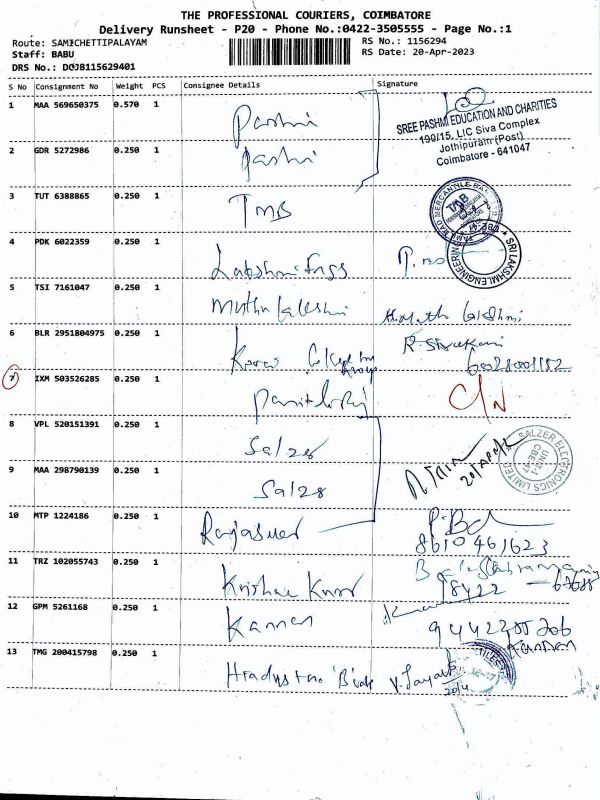 THE PROFESSIONAL COURIERS, COIMBATORE
Delivery Runsheet - P20 - Phone No.:0422-3505555 - Page No.:1
Route: SAMICHETTIPALAYAM RS No.: 1156294
Staff: BABU RS Date: 20-Apr-2023
DRS No.: DOJB115629401
S No Consignment No Weight PCS Consignee Details Signature
1 MAA 569650375 0.570 1 Pashmi
SREE PASHMI EDUCATION AND CHARITIES
190/15, LIC Siva Complex
Jothipuram (Post)
Coimbatore - 641047
2 GDR 5272986 0.250 1 Pashmi
3 TUT 6388865 0.250 1 TMB
TMB
4 PDK 6022359 0.250 1 Lakshmi Engs
SRI LAKSHMI ENGINEERING
5 TSI 7161047 0.250 1 Muthu lakshmi
6 BLR 2951804975 0.250 1
7 IXM 503526285 0.250 1 C/N
8 VPL 520151391 0.250 1 Salzer
SALZER ELECTRONICS LIMITED
UNIT-1
CBE-47
9 MAA 298790139 0.250 1 Salzer
10 MTP 1224186 0.250 1
8610461623
11 TRZ 102055743 0.250 1 Krishna Kumar
12 GPM 5261168 0.250 1 Kannan
Kannan
13 TMG 200415798 0.250 1
20/4